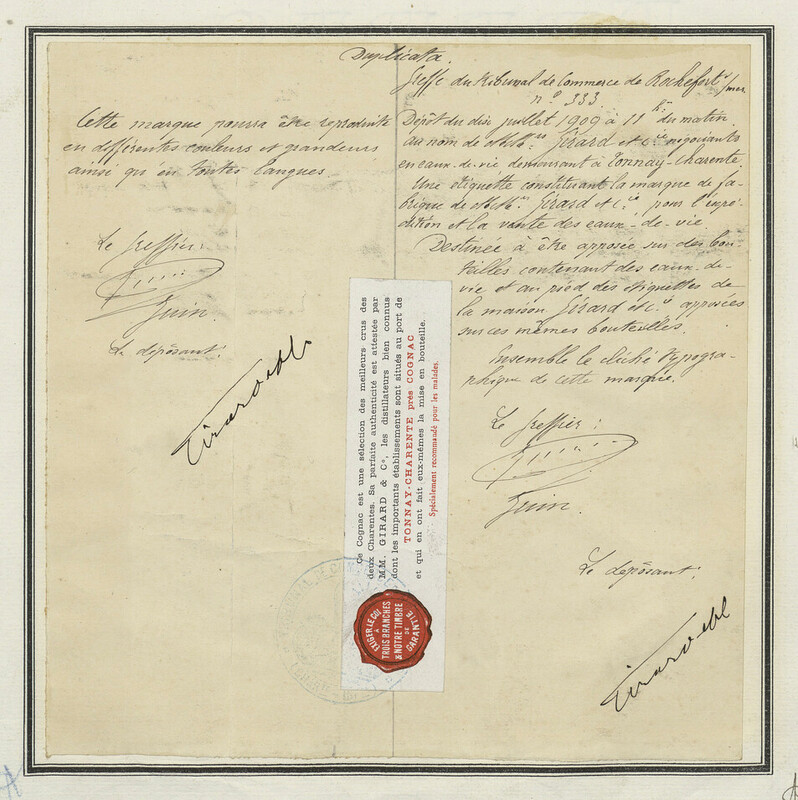 Duplicata.
Cette marque pourra être reproduite
en différentes couleurs et grandeurs
ainsi qu'en toutes langues.
Le Greffier:
Juin.
Le déposant:
Girard & Cie
Greffe du tribunal de Commerce de Rochefort s/mer
nº 333
Dépôt du dix juillet 1909 à 11 h. du matin
au nom de MM.rs Girard et Cie négociants
en eaux-de-vie demeurant à Tonnay-Charente
Une étiquette constituant la marque de fa-
brique de MM.rs Girard et Cie pour l'expé-
dition et la vente des eaux-de-vie
Destinée à être apposée sur des bou-
teilles contenant des eaux-de-
vie et au pied des étiquettes de
la maison Girard et Cie apposées
sur ces mêmes bouteilles.
Ensemble le cliché typogra-
phique de cette marque.
Le Greffier:
Juin.
Le déposant:
Girard & Cie
Ce Cognac est une sélection des meilleurs crus des
deux Charentes. Sa parfaite authenticité est attestée par
MM. GIRARD & Cº, les distillateurs bien connus
dont les importants établissements sont situés au port de
TONNAY-CHARENTE près COGNAC
et qui en ont fait eux-mêmes la mise en bouteille.
Spécialement recommandé pour les malades.
EXIGER LE COQ
A
TROIS BRANCHES
& NOTRE TIMBRE
DE
GARANTIE